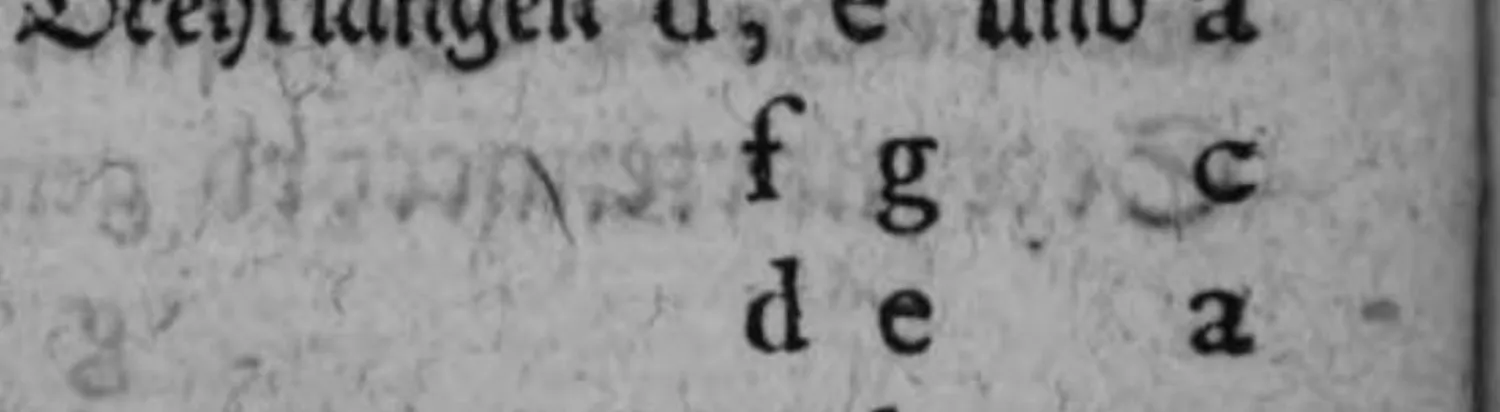 Drehklangen d, e und a
f g c
d e a